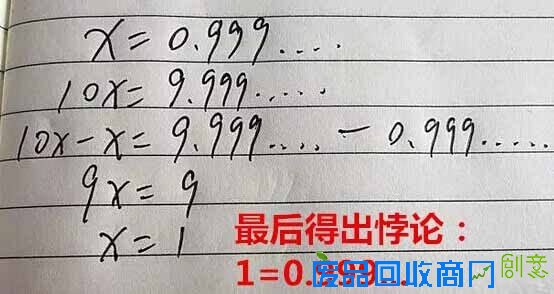 x = 0.999....
10x = 9.999.....
10x - x = 9.999.... - 0.999.....
9x = 9
x = 1
最后得出悖论：
1=0.999...
废品回收商网
创意